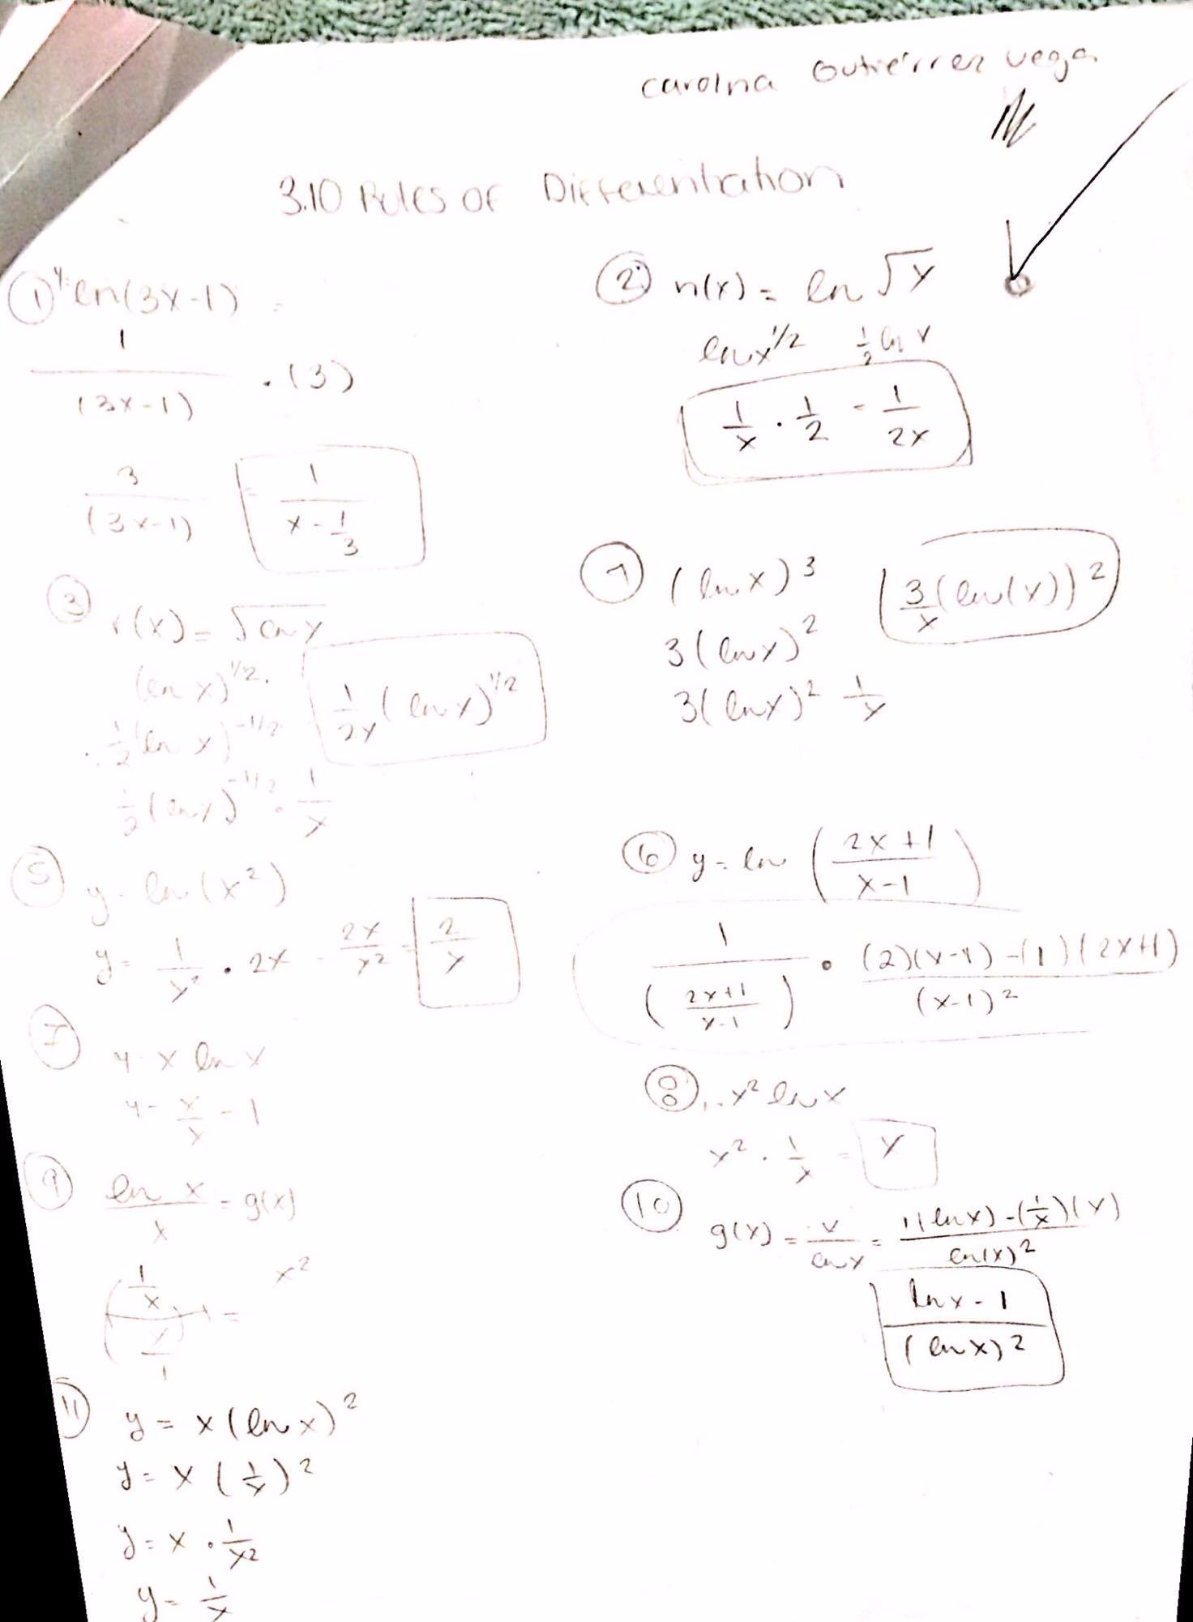 Carolina Gutiérrez Vega
3.10 Rules of Differentiation
① y=ln(3x-1) =
1/(3x-1) · (3)
3/(3x-1) = 1/(x-1/3)
② n(x) = ln √x
ln x^1/2 1/2 ln x
1/x · 1/2 = 1/2x
③ r(x) = √ln x
(ln x)^1/2
1/2(ln x)^-1/2
1/2(ln x)^-1/2 · 1/x
1/2x (ln x)^1/2
(ln x)^3
3(ln x)^2
3(ln x)^2 1/x
3/x (ln(x))^2
⑤ y = ln(x^2)
y = 1/x^2 · 2x = 2x/x^2 = 2/x
⑥ y = ln ((2x+1)/(x-1))
1/((2x+1)/(x-1)) · ((2)(x-1)-(1)(2x+1))/(x-1)^2
y = x ln x
y = x/x = 1
⑧ x^2 ln x
x^2 · 1/x = x
⑨ ln x/x = g(x)
(1/x)/(x/1) = x^2
⑩ g(x) = x/ln x = (1(ln x)-(1/x)(x))/ln(x)^2
(ln x - 1)/(ln x)^2
11 y = x(ln x)^2
y = x(1/x)^2
y = x · 1/x^2
y = 1/x